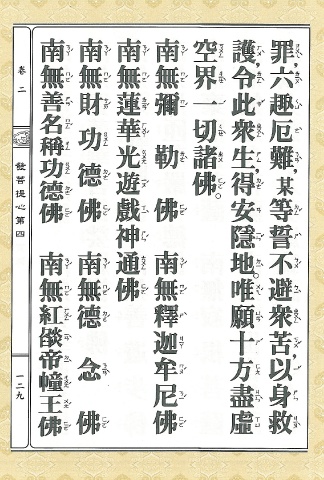 罪，六趣厄難，某等誓不避衆苦，以身救
護，令此衆生，得安隱地。唯願十方盡虛
空界一切諸佛。
南無彌勒佛 南無釋迦牟尼佛
南無蓮華光遊戲神通佛
南無財功德佛 南無德念佛
南無善名稱功德佛 南無紅燄帝幢王佛
卷二
發菩提心第四
一二九